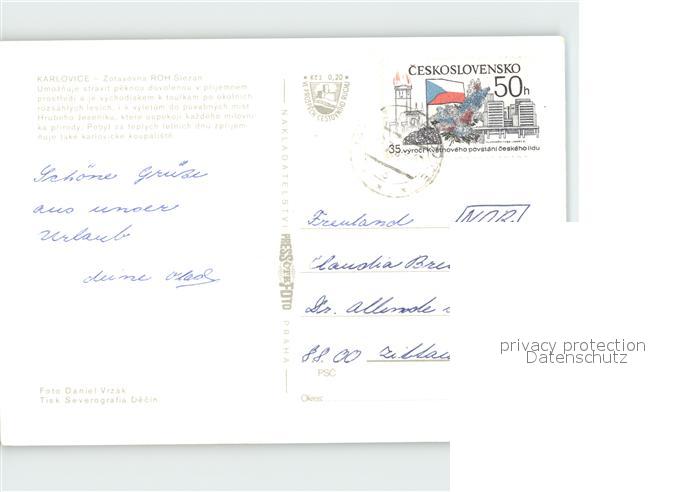 KARLOVICE – Zotavovna ROH Slezan
Umožňuje strávit pěknou dovolenou v příjemném
prostředí a je východiskem k toulkám po okolních
rozsáhlých lesích, i k výletům do půvabných míst
Hrubého Jeseníku, které uspokojí každého milovní-
ka přírody. Pobyt za teplých letních dnů zpříjem-
ňuje také karlovické koupaliště.
Schöne Grüße
aus unser
Urlaub
deine
Foto Daniel Vrzák
Tisk Severografia Děčín
Kčs 0,20
NAKLADATELSTVÍ
PRESSFOTO
PRAHA
ČESKOSLOVENSKO
50h
35. výročí Květnového povstání českého lidu
NDR
Freuland
Claudia
Dr. Allende
88.00 Zittau
PSČ
Okres:
privacy protection
Datenschutz